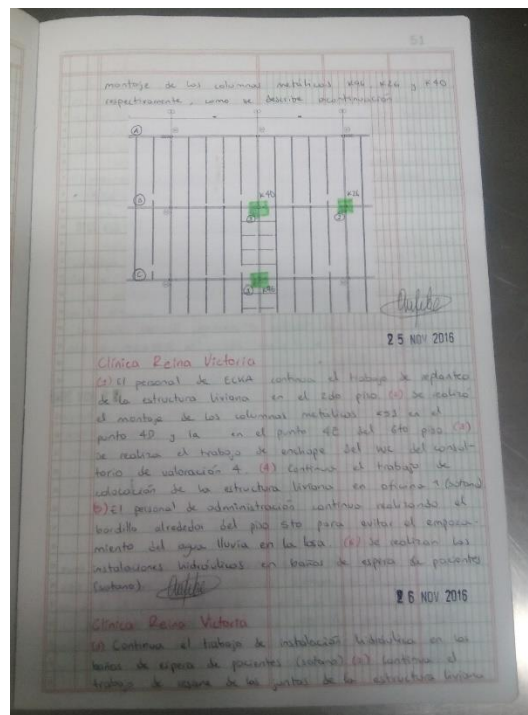 51
montaje de las columnas metálicas K96, K26 y K40
respectivamente, como se describe acontinuación
A
K40
K26
B
2
C
K96
25 NOV 2016
Clínica Reina Victoria
(1) El personal de ECKA continua el trabajo de replanteo
de la estructura liviana en el 2do piso (2) se realiza
el montaje de las columnas metálicas en el
punto 4D y la en el punto 4C del 6to piso (3)
se realiza el trabajo de enchape del wc del consul-
torio de valoración 4. (4) Continua el trabajo de
colocación de la estructura liviana en oficina 1 (sotano)
5) El personal de administración continua realizando el
bordillo alrededor del piso 5to para evitar el empoza-
miento del agua lluvia en la losa (6) se realizan las
instalaciones hidráulicas en baños de espera de pacientes
(sotano).
26 NOV 2016
Clínica Reina Victoria
(1) Continua el trabajo de instalación hidráulica en los
baños de espera de pacientes (sotano) (2) Continua el
trabajo de resane de las juntas de la estructura liviana